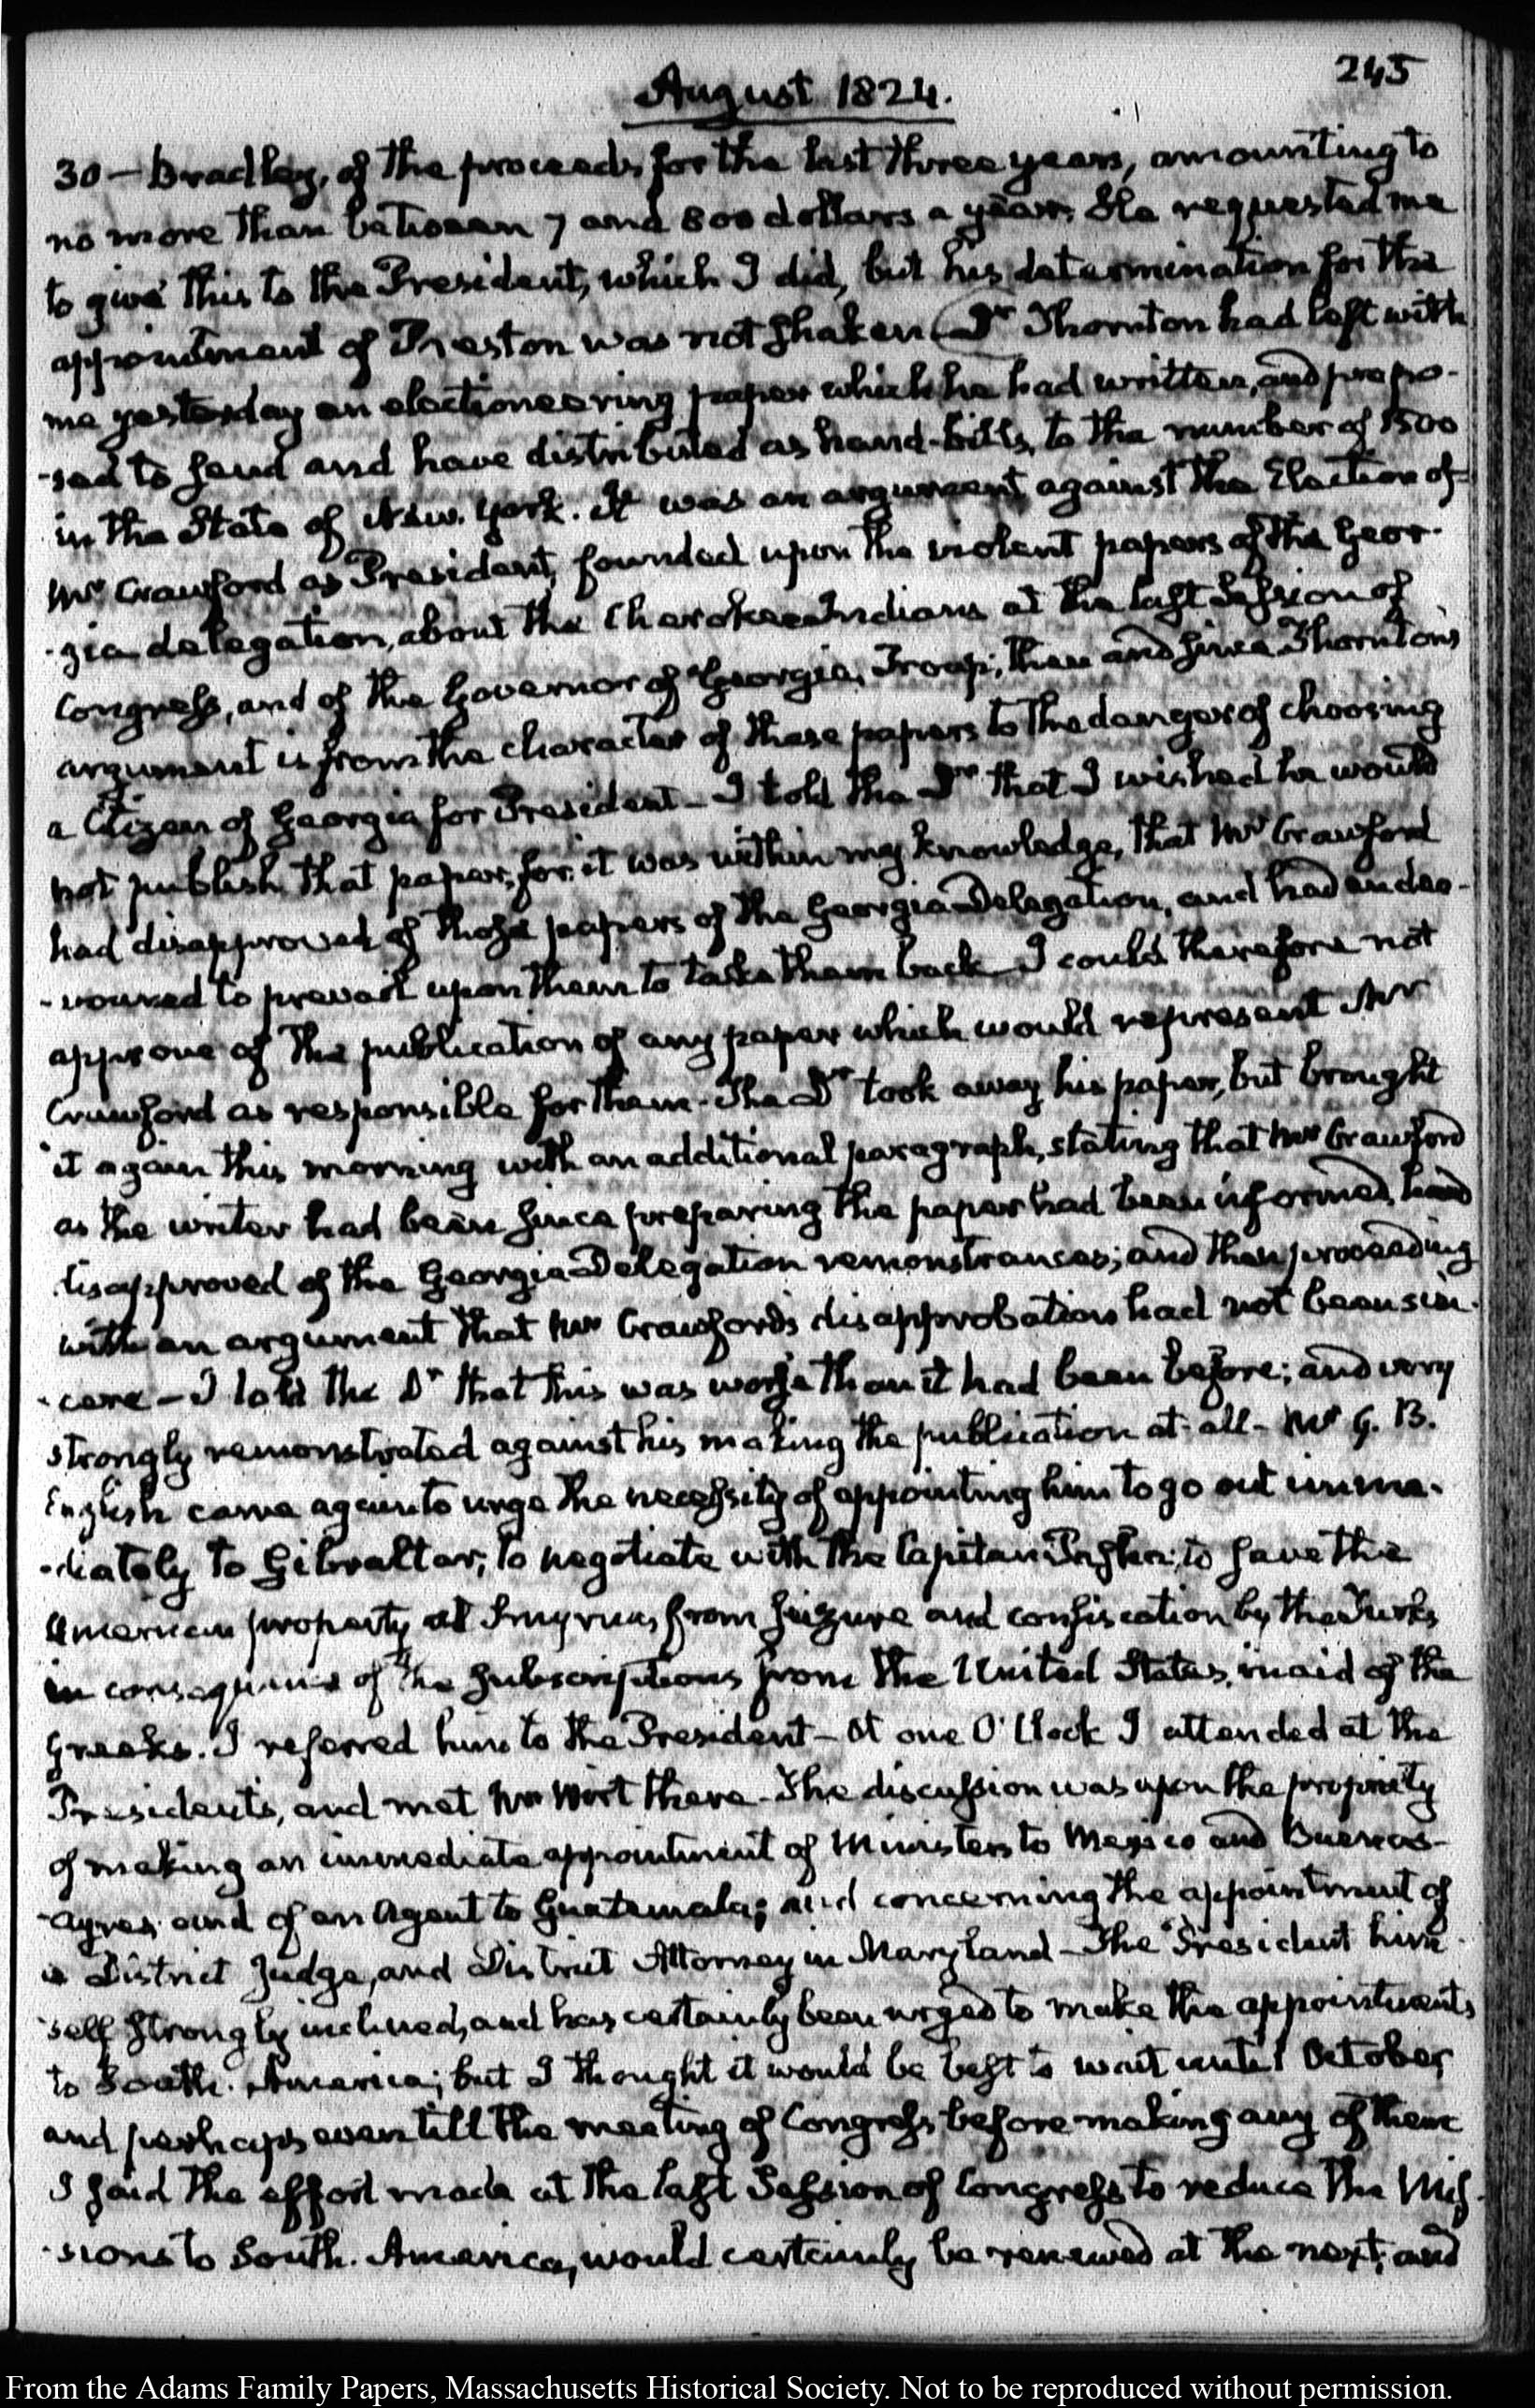 245
August 1824.
30 — Bradley, of the proceeds for the last three years, amounting to
no more than between 7 and 800 dollars a year. He requested me
to give this to the President, which I did, but his determination for the
appointment of Preston was not shaken. Dr Thornton had left with
me yesterday an electioneering paper which he had written, and propo-
-sed to send and have distributed as hand-bills, to the number of 1500
in the State of New-York. It was an argument against the Election of
Mr Crawford as President, founded upon the violent papers of the Geor-
-gia delegation, about the Cherokee Indians at the last Session of
Congress, and of the Governor of Georgia, Troup; then and since. Thornton's
argument is from the character of these papers to the danger of choosing
a Citizen of Georgia for President — I told the Dr that I wished he would
not publish that paper, for it was within my knowledge, that Mr Crawford
had disapproved of those papers of the Georgia Delegation, and had endea-
-voured to prevail upon them to take them back. I could therefore not
approve of the publication of any paper which would represent Mr
Crawford as responsible for them. The Dr took away his paper, but brought
it again this morning with an additional paragraph, stating that Mr Crawford
as the writer had been since preparing the paper had been informed, had
disapproved of the Georgia Delegation remonstrances; and then proceeding
with an argument that Mr Crawford's disapprobation had not been sin-
-cere — I told the Dr that this was worse than it had been before; and very
strongly remonstrated against his making the publication at all — Mr G. B.
English came again to urge the necessity of appointing him to go out imme-
-diately to Gibraltar, to negotiate with the Capitan Pasha; to save the
American property at Smyrna, from seizure and confiscation by the Turks
in consequence of the subscriptions from the United States, in aid of the
Greeks. I referred him to the President — At one O'Clock I attended at the
President's, and met Mr Wirt there. The discussion was upon the propriety
of making an immediate appointment of Ministers to Mexico and Buenos-
-Ayres, and of an Agent to Guatemala; and concerning the appointment of
a District Judge, and District Attorney in Maryland — The President him-
self strongly inclined, and has certainly been urged to make the appointments
to South-America; but I thought it would be best to wait until October,
and perhaps even till the meeting of Congress before making any of them
I said the effort made at the last Session of Congress to reduce the Mis-
-sions to South-America, would certainly be renewed at the next; and
From the Adams Family Papers, Massachusetts Historical Society. Not to be reproduced without permission.